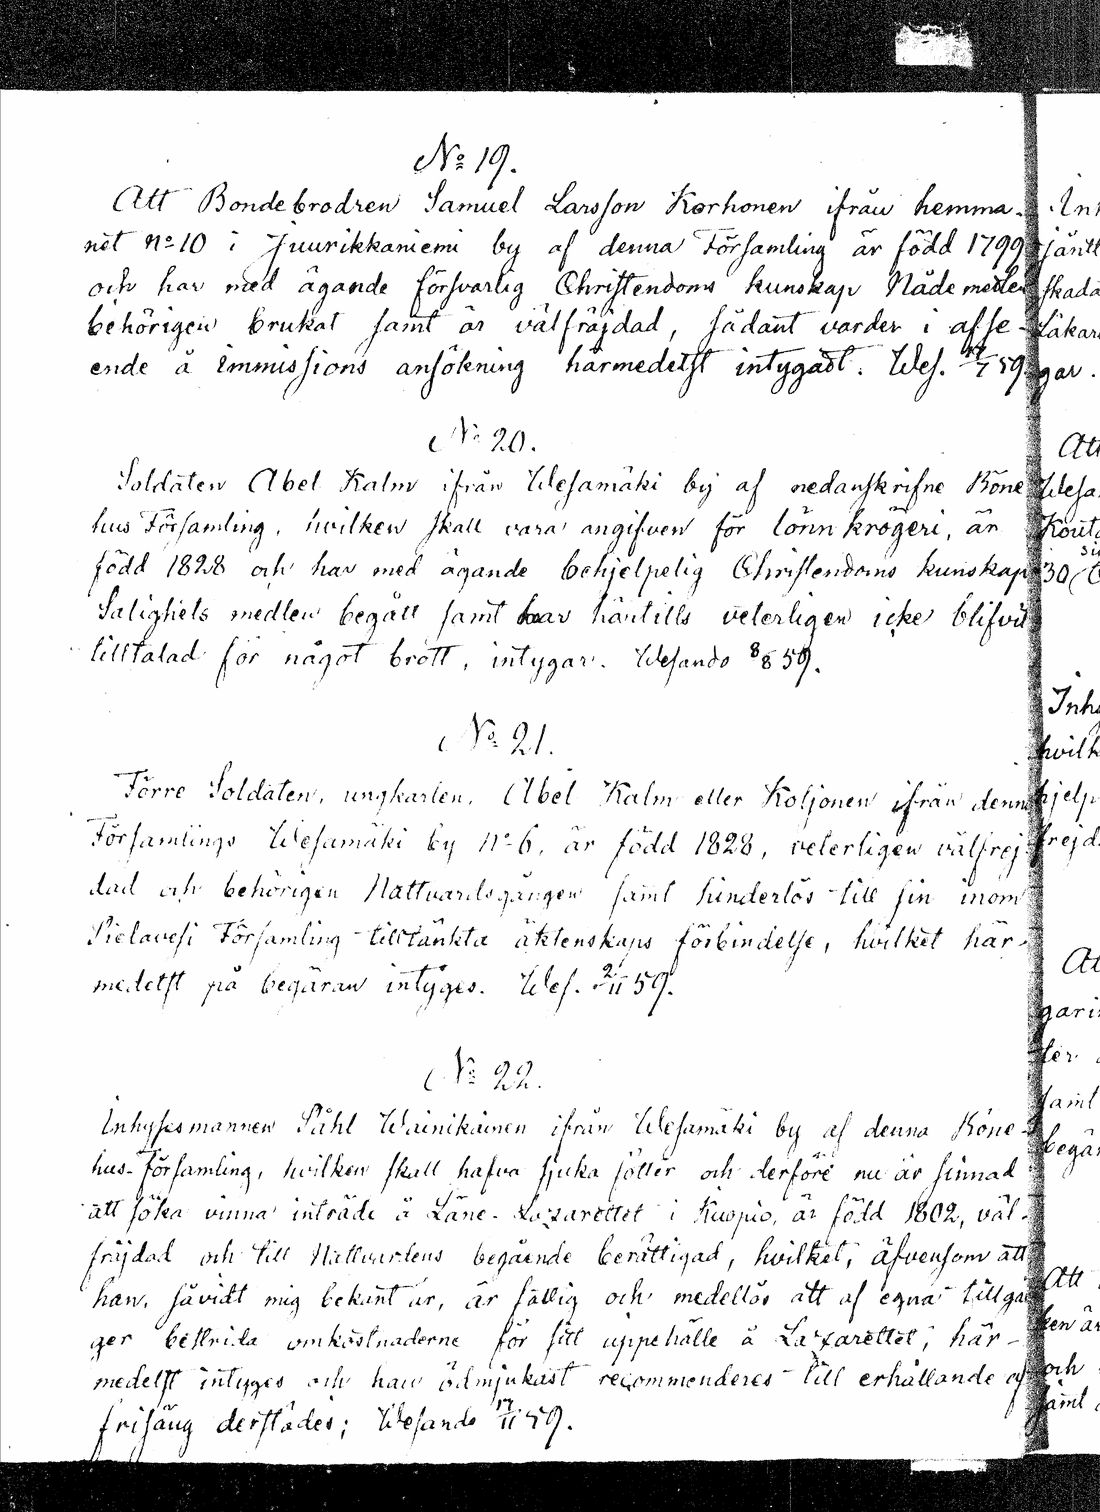 No 19.
Att Bondebrodren Samuel Larsson Korhonen ifrån hemma-
net No 10 i Juurikkaniemi by af denna Församling är född 1799
och har med ägande försvarlig Christendoms kunskap Nådemedlen
behörigen brukat samt är välfräjdad, sådant varder i afse-
ende å immissions ansökning härmedelst intygadt. Wes. 59.
No 20.
Soldaten Abel Kalm ifrån Wesamäki by af nedanskrifne Böne
hus Församling, hvilken skall vara angifven för lönnkrögeri, är
född 1828 och har med ägande behjelpelig Christendoms kunskap
Salighets medlen begått samt har härtills veterligen icke blifvit
tilltalad för något brott, intygar. Wesando 8/8 59.
No 21.
Förre Soldaten, ungkarlen, Abel Kalm eller Koljonen ifrån denna
Församlings Wesamäki by No 6, är född 1828, veterligen välfrej-
dad och behörigen Nattvardsgången samt hinderlös till sin inom
Pielavesi Församling tilltänkta äktenskaps förbindelse, hvilket här-
medelst på begäran intyges. Wes. 2/11 59.
No 22.
Inhysesmannen Påhl Wainikainen ifrån Wesamäki by af denna Böne-
hus-Församling, hvilken skall hafva sjuka fötter och derföre nu är sinnad
att söka vinna inträde å Läne-Lazarettet i Kuopio, är född 1802, väl-
fräjdad och till Nattvardens begående berättigad, hvilket, äfvensom att
han, såvidt mig bekant är, är fattig och medellös att af egna tillgån
ger bestrida omkostnaderne för sitt uppehälle å Lazarettet, här-
medelst intyges och han ödmjukast recommenderes till erhållande af
frisäng derstädes; Wesando 17/11 59.